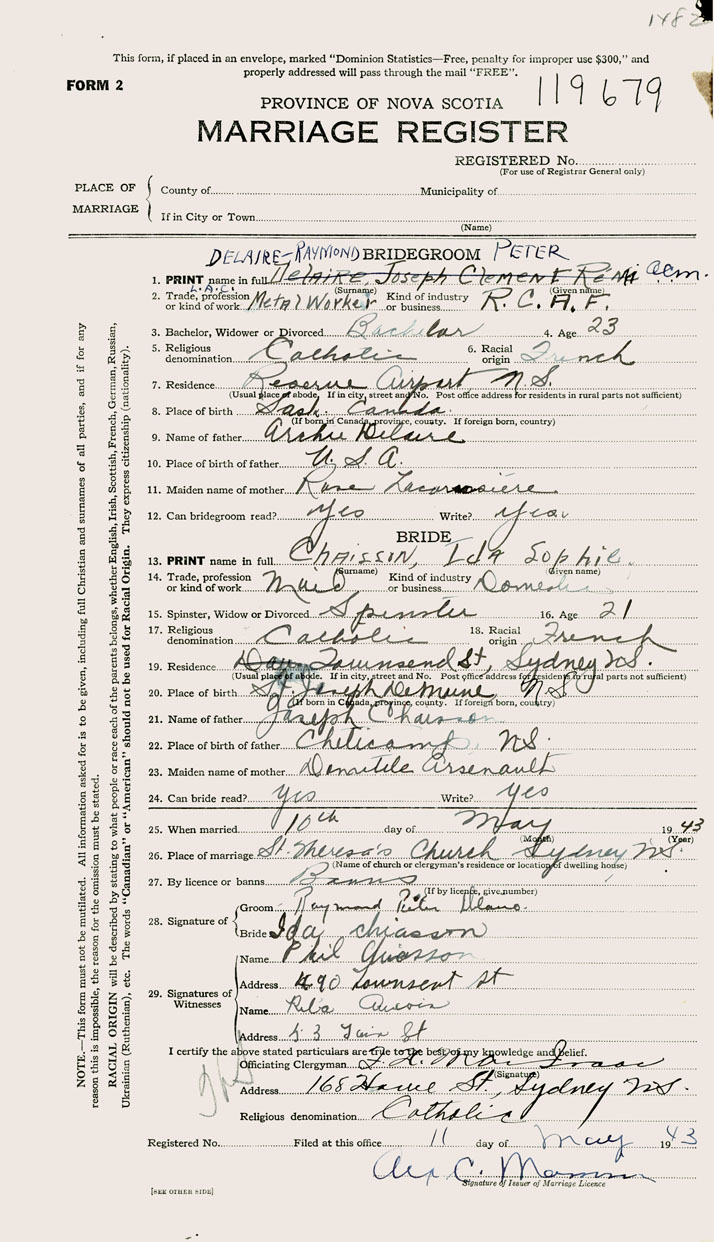 1482
This form, if placed in an envelope, marked "Dominion Statistics—Free, penalty for improper use $300," and
properly addressed will pass through the mail "FREE".
FORM 2
119679
PROVINCE OF NOVA SCOTIA
MARRIAGE REGISTER
REGISTERED No.
(For use of Registrar General only)
PLACE OF MARRIAGE
County of Municipality of
If in City or Town
(Name)
DELAIRE-RAYMOND BRIDEGROOM PETER
1. PRINT name in full DELAIRE, JOSEPH CLEMENT REMI acm.
(Surname) (Given name)
L.A.C.
2. Trade, profession or kind of work Metal Worker Kind of industry or business R.C.A.F.
3. Bachelor, Widower or Divorced Bachelor 4. Age 23
5. Religious denomination Catholic 6. Racial origin French
7. Residence Reserve Airport N.S.
(Usual place of abode. If in city, street and No. Post office address for residents in rural parts not sufficient)
8. Place of birth Sask. Canada.
(If born in Canada, province, county. If foreign born, country)
9. Name of father Archie Delaire
10. Place of birth of father U.S.A.
11. Maiden name of mother Rose
12. Can bridegroom read? Yes Write? Yes
BRIDE
13. PRINT name in full CHAISSIN, IDA SOPHIE.
(Surname) (Given name)
14. Trade, profession or kind of work Maid Kind of industry or business Domestic
15. Spinster, Widow or Divorced Spinster 16. Age 21
17. Religious denomination Catholic 18. Racial origin French
19. Residence Townsend St, Sydney N.S.
(Usual place of abode. If in city, street and No. Post office address for residents to rural parts not sufficient)
20. Place of birth St. Joseph DeMoine, N.S
(If born in Canada, province, county. If foreign born, country)
21. Name of father Joseph Chaisson
22. Place of birth of father Cheticamp, N.S.
23. Maiden name of mother Domitile Arsenault
24. Can bride read? yes Write? yes
25. When married 10th day of May 1943
(Month) (Year)
26. Place of marriage St. Theresa's Church Sydney N.S.
(Name of church or clergyman's residence or location of dwelling house)
27. By licence or banns Banns
(If by licence, give number)
28. Signature of Groom Raymond Peter
Bride Ida Chiasson
29. Signatures of Witnesses Name Phil Chiasson
Address 490 Townsent St
Name
Address 53 St
I certify the above stated particulars are true to the best of my knowledge and belief.
Officiating Clergyman
(Signature)
Address 168 Howe St, Sydney N.S.
Religious denomination Catholic
Registered No. Filed at this office 11 day of May 1943
Alex C.
Signature of Issuer of Marriage Licence
[SEE OTHER SIDE]
NOTE.—This form must not be mutilated. All information asked for is to be given, including full Christian and surnames of all parties, and if for any
reason this is impossible, the reason for the omission must be stated.
RACIAL ORIGIN will be described by stating to what people or race each of the parents belongs, whether English, Irish, Scottish, French, German, Russian,
Ukrainian (Ruthenian), etc. The words "Canadian" or "American" should not be used for Racial Origin. They express citizenship (nationality).